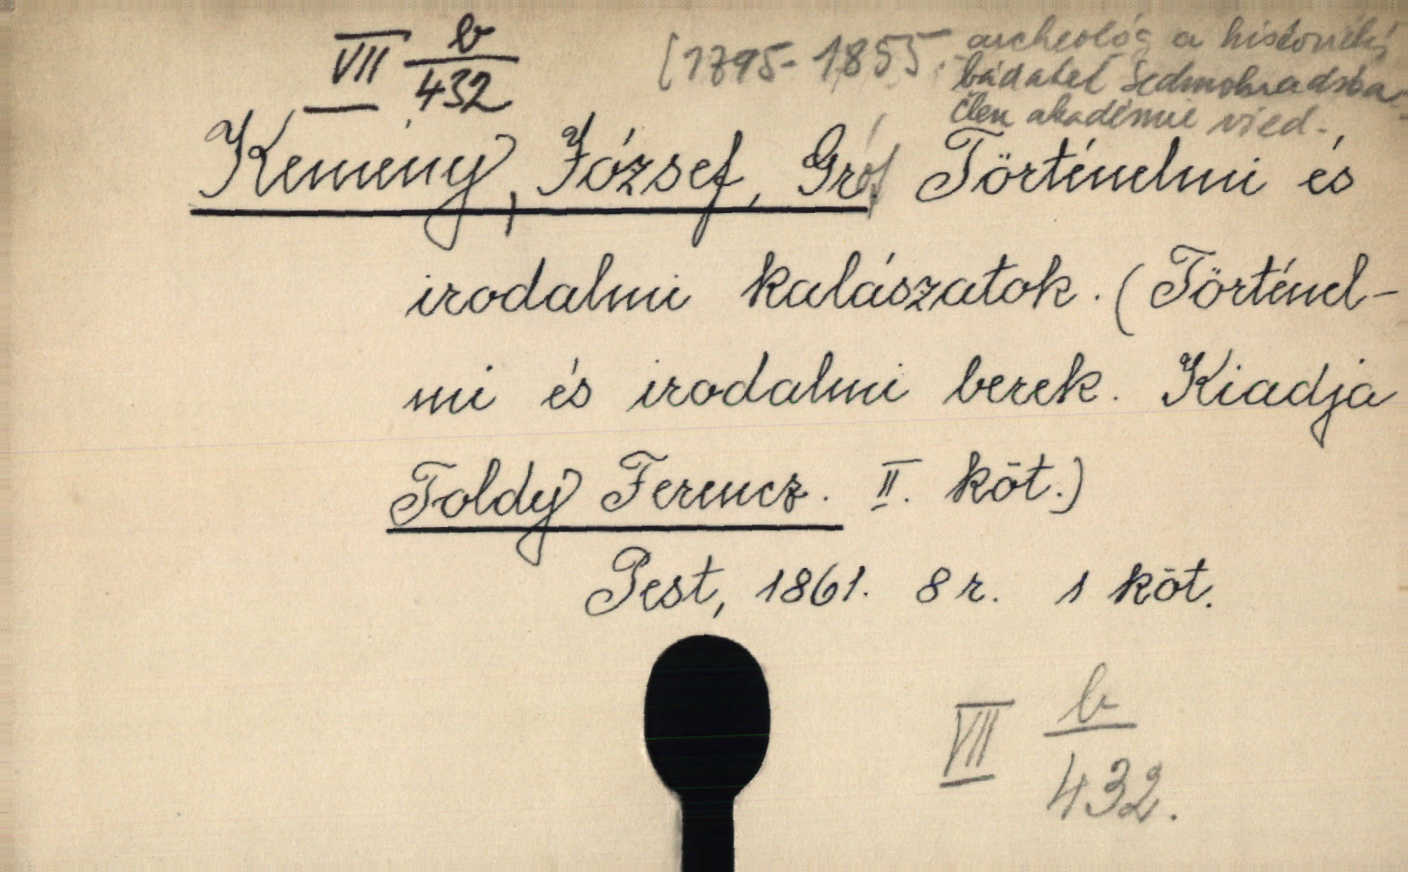 VII b/432
(1795-1855. archeológ a historický
bádateľ Sedmohradska
člen akadémie vied.,
Kemény, József, Gróf Történelmi és
irodalmi kalászatok. (Történel-
mi és irodalmi berek. Kiadja
Toldy Ferencz. II. köt.)
Pest, 1861. 8 r. 1 köt.
VII b/432.